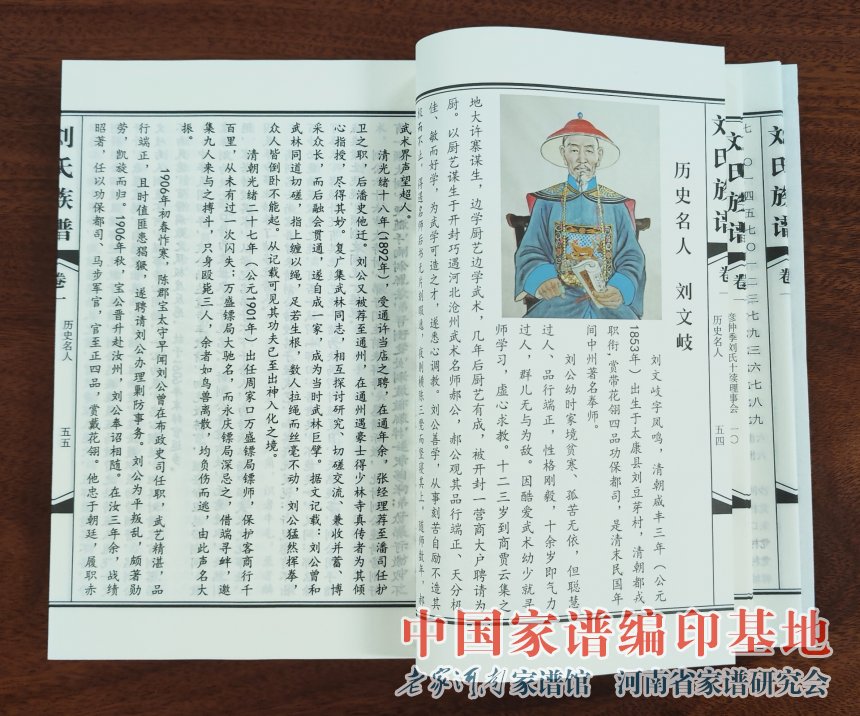 刘氏族谱
卷一
刘氏族谱
卷一
彭仲季刘氏十续理事会
一〇
刘氏族谱
卷一
历史名人
五四
历史名人 刘文岐
刘文岐字凤鸣，清朝咸丰三年（公元
1853年）出生于太康县刘豆芽村，清朝都戎
职衔，赏带花翎四品功保都司，是清末民国年
间中州著名拳师。
刘公幼时家境贫寒、孤苦无依，但聪慧
过人、品行端正，性格刚毅，十余岁即气力
过人，群儿无与为敌。因酷爱武术幼少就寻
师学习，虚心求教。十二三岁到商贾云集之
地大许寨谋生，边学厨艺边学武术，几年后厨艺有成，被开封一营商大户聘请为
厨。以厨艺谋生于开封巧遇河北沧州武术名师郝公，郝公观其品行端正、天分极
佳、敏而好学，为武学可造之才，遂悉心调教。刘公善学，从事刻苦自励不造其
武术界声望超人。
清光绪十八年（1892年），受通许当店之聘，在通年余，张经理荐至潘司任护
卫之职，后潘吏他迁。刘公又被荐至通州，在通州遇豪士得少林寺真传者为其倾
心指授，尽得其妙。复广集武林同志，相互探讨研究、切磋交流、兼收并蓄、博
采众长，而后融会贯通，遂自成一家，成为当时武林巨擘。据文记载：刘公曾和
武林同道切磋，指上缠以绳，足若生根，数人拉绳而丝毫不动，刘公猛然挥拳，
众人皆倒卧不能起。从记载可见其功夫已至出神入化之境。
清朝光绪二十七年（公元1901年）出任周家口万盛镖局镖师，保护客商行千
百里，从未有过一次闪失；万盛镖局大驰名，而永庆镖局深忌之，借端寻衅，邀
集九人来与之搏斗，只身殴毙三人，余者如鸟兽离散，均负伤而逃，由此声名大
振。
1906年初春怍寒，陈郡宝太守早闻刘公曾在布政史司任职，武艺精湛，品
行端正，且时值匪患猖獗，遂聘请刘公办理剿防事务。刘公为平叛乱，颇著勋
劳，凯旋而归。1906年秋，宝公晋升赴汝州，刘公奉诏相随。在汝三年余，战绩
昭著，任以功保都司、马步军官，官至正四品，赏戴花翎。他忠于朝廷，履职赤
刘氏族谱
卷一
历史名人
五五
中国家谱编印基地
老家河南家谱馆 河南省家谱研究会